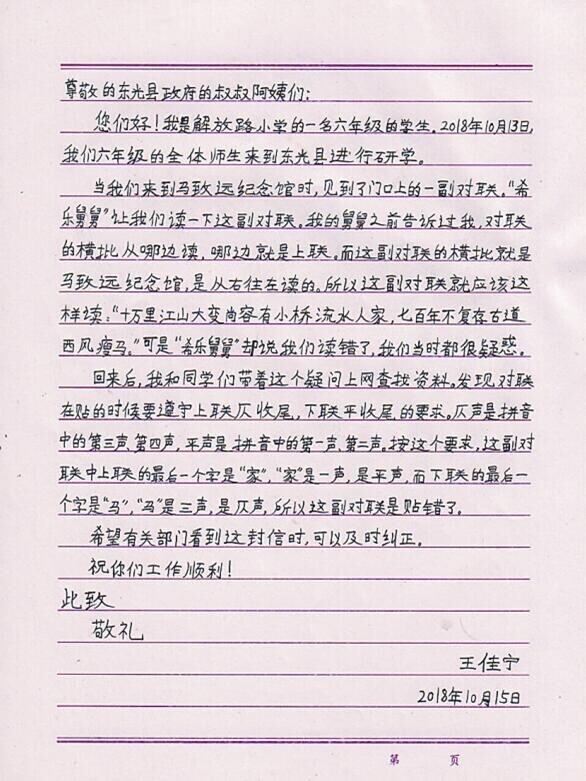 尊敬的东光县政府的叔叔阿姨们：
您们好！我是解放路小学的一名六年级的学生。2018年10月13日，
我们六年级的全体师生来到东光县进行研学。
当我们来到马致远纪念馆时，见到了门口上的一副对联。“希
乐舅舅”让我们读一下这副对联。我的舅舅之前告诉过我，对联
的横批从哪边读，哪边就是上联。而这副对联的横批就是
马致远纪念馆，是从右往左读的。所以这副对联就应该这
样读：“十万里江山大变尚容有小桥流水人家，七百年不复存古道
西风瘦马。”可是“希乐舅舅”却说我们读错了，我们当时都很疑惑。
回来后，我和同学们带着这个疑问上网查找资料。发现对联
在贴的时候要遵守上联仄收尾，下联平收尾的要求。仄声是拼音
中的第三声、第四声，平声是拼音中的第一声、第二声。按这个要求，这副对
联中上联的最后一个字是“家”，“家”是一声，是平声，而下联的最后一
个字是“马”，“马”是三声，是仄声，所以这副对联是贴错了。
希望有关部门看到这封信时，可以及时纠正。
祝你们工作顺利！
此致
敬礼
王佳宁
2018年10月15日
第 页